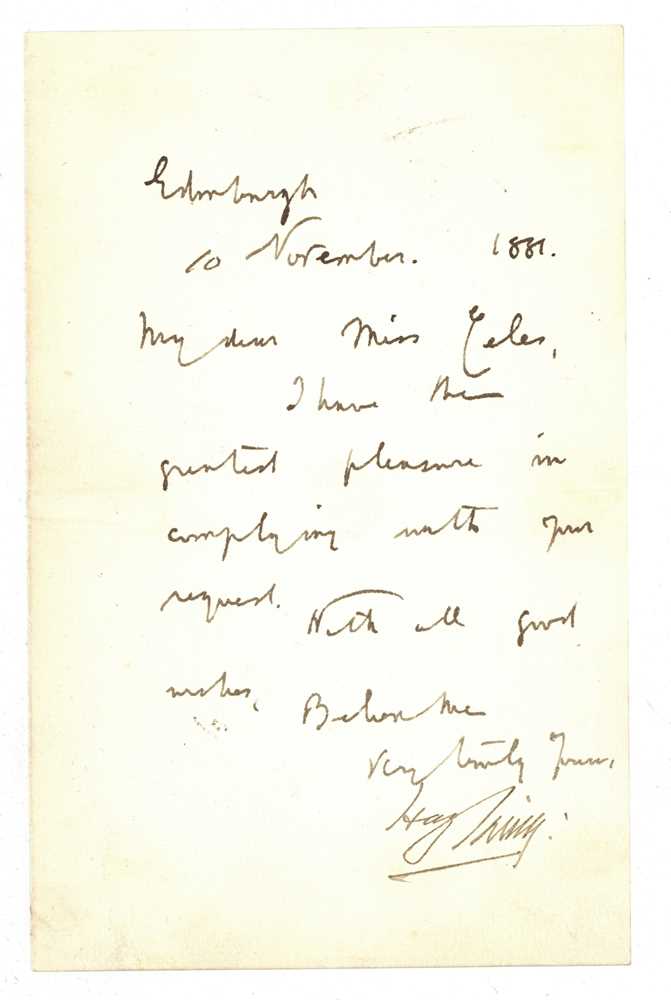 Edinburgh
10 November. 1881.
My dear Miss Eeles,
I have the
greatest pleasure in
complying with your
request.
With all good
wishes,
Believe me
Very truly Yours,
Irving